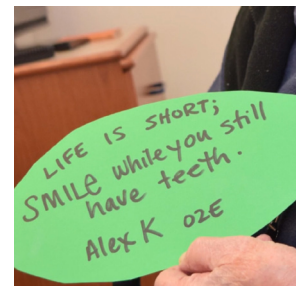 LIFE IS SHORT;
SMILE while you still
have teeth.
Alex K 02E